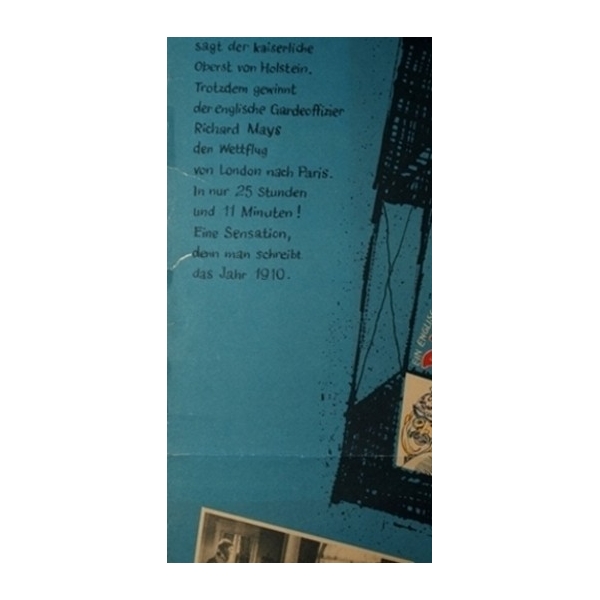 sagt der kaiserliche
Oberst von Holstein.
Trotzdem gewinnt
der englische Gardeoffizier
Richard Mays
den Wettflug
von London nach Paris.
In nur 25 Stunden
und 11 Minuten!
Eine Sensation,
denn man schreibt
das Jahr 1910.
EIN ENGLIS